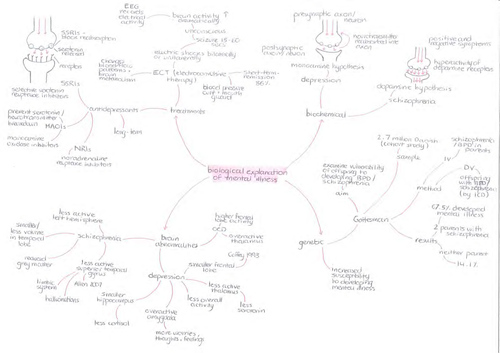 EEG
records
electrical
activity
brain activity ↑
dramatically
unconscious
seizure 15-60
secs
electric shocks bilaterally
or unilaterally
ECT (electroconvulsive
therapy)
short-term
remission
treatments
SSRIs -
block reabsorption
serotonin
receptor
SSRIs
selective serotonin
reuptake inhibitors
prevent serotonin/
breakdown
MAOIs
monoamine
oxidase inhibitors
NRIs
noradrenaline
reuptake inhibitors
antidepressants
long-term
presynaptic axon/
neuron
postsynaptic
neurotransmitter
monoamine hypothesis
depression
positive and
negative symptoms
hypersensitivity of
dopamine receptors
dopamine hypothesis
schizophrenia
biochemical
biological explanation
of mental illness
genetic
Gottesman
aim
examine vulnerability
of offspring to
developing BPD/
schizophrenia
2.7 million Danish
(cohort study)
sample
method
IV
schizophrenia
/BPD in
parents
DV
offspring
with BPD/
schizophrenia
(by ICD)
results
developed
mental illness
2 parents with
schizophrenia
neither parent
14.1%
increased
susceptibility
to developing
mental illness
brain
abnormalities
higher frontal
lobe activity
OCD
overactive
thalamus
schizophrenia
less active
left hemisphere
smaller/
less volume
in temporal
lobe
reduced
grey matter
less active
superior temporal
gyrus
limbic
system
hallucinations
depression
Coffey 1993
smaller frontal
lobe
less active
thalamus
less
serotonin
less overall
activity
overactive
amygdala
more worries,
thoughts, feelings
smaller
hippocampus
less cortisol